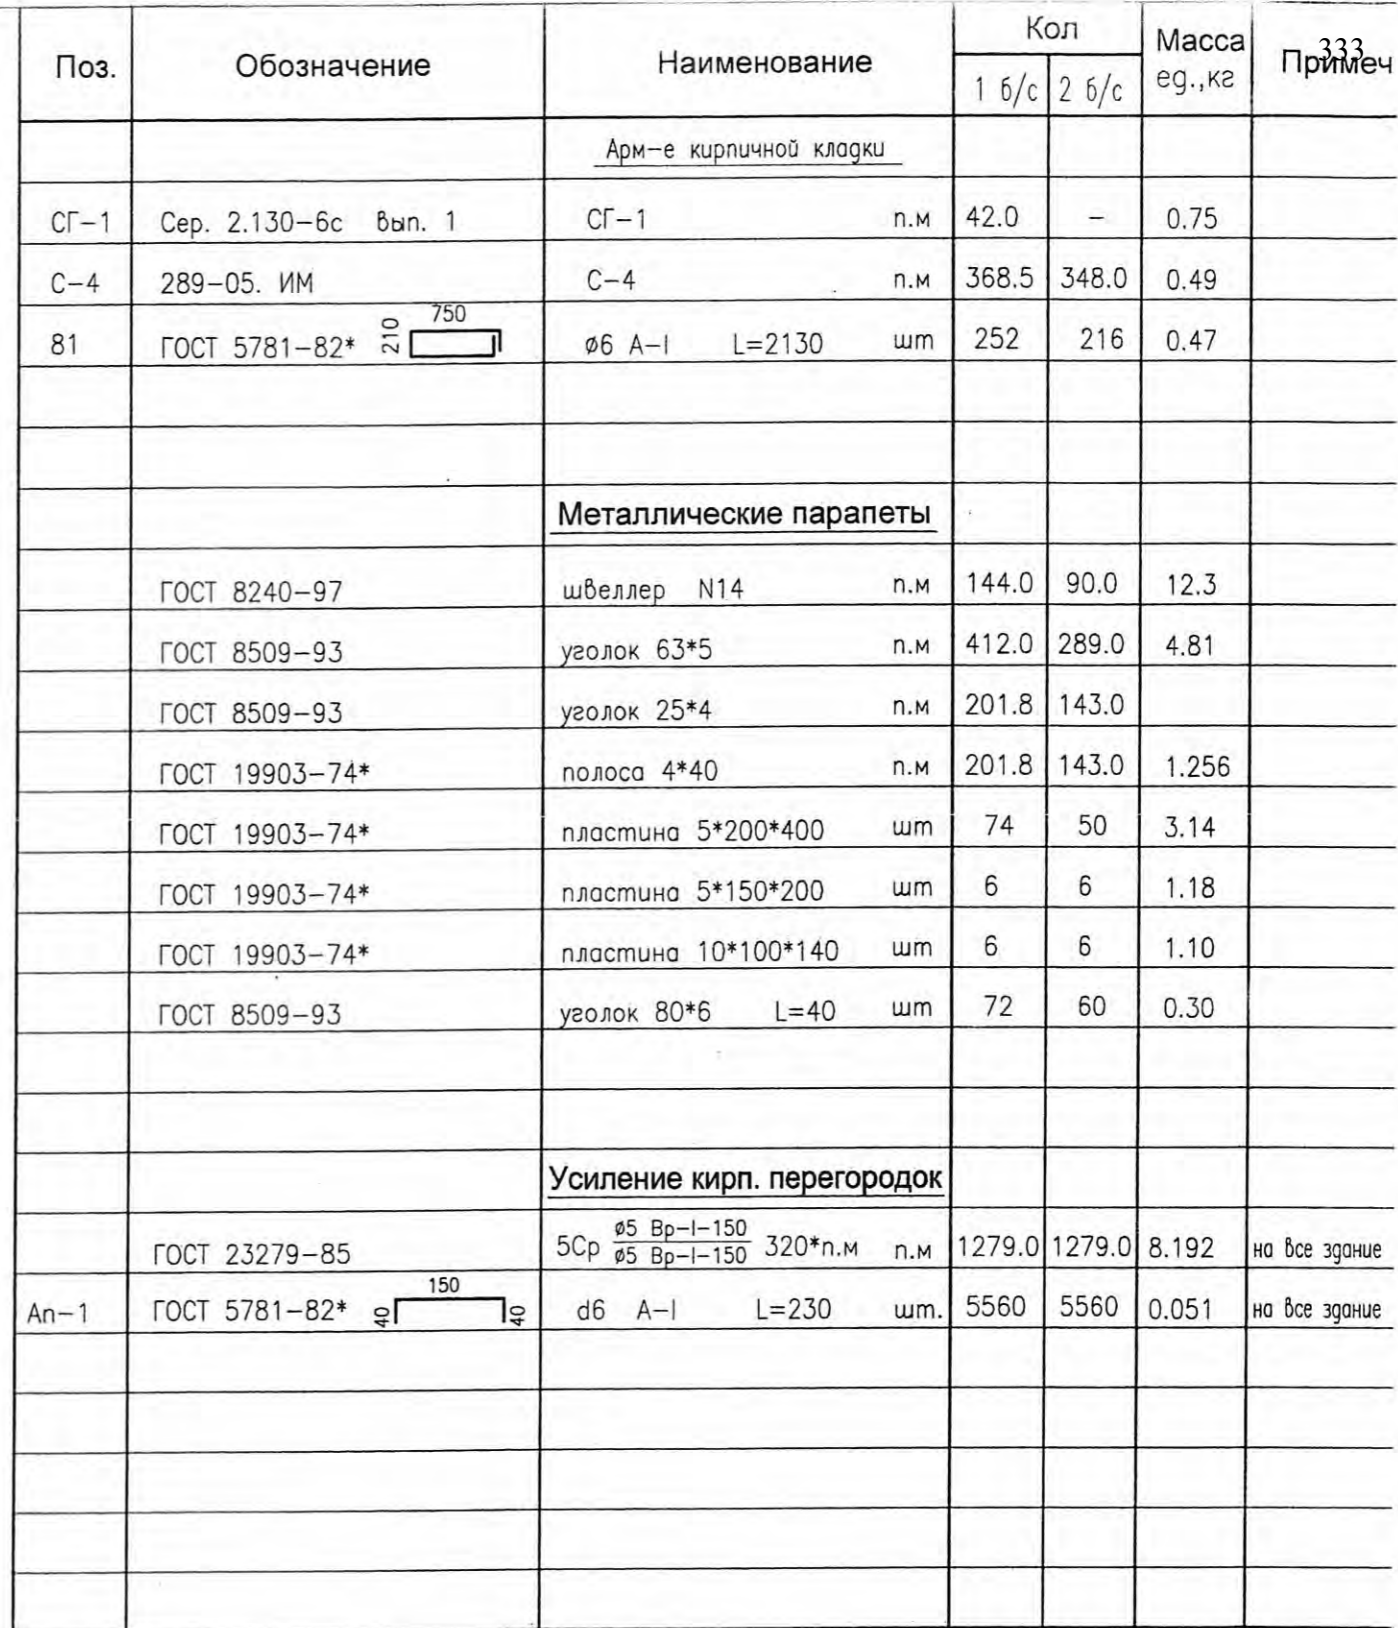 Поз. Обозначение Наименование Кол Масса ед.,кг Примеч
333
1 б/с 2 б/с
Арм-е кирпичной кладки
СГ-1 Сер. 2.130-6с Вып. 1 СГ-1 п.м 42.0 - 0.75
С-4 289-05. ИМ С-4 п.м 368.5 348.0 0.49
81 ГОСТ 5781-82* 210 750 ø6 А-I L=2130 шт 252 216 0.47
Металлические парапеты
ГОСТ 8240-97 швеллер N14 п.м 144.0 90.0 12.3
ГОСТ 8509-93 уголок 63*5 п.м 412.0 289.0 4.81
ГОСТ 8509-93 уголок 25*4 п.м 201.8 143.0
ГОСТ 19903-74* полоса 4*40 п.м 201.8 143.0 1.256
ГОСТ 19903-74* пластина 5*200*400 шт 74 50 3.14
ГОСТ 19903-74* пластина 5*150*200 шт 6 6 1.18
ГОСТ 19903-74* пластина 10*100*140 шт 6 6 1.10
ГОСТ 8509-93 уголок 80*6 L=40 шт 72 60 0.30
Усиление кирп. перегородок
ГОСТ 23279-85 5Ср ø5 Вр-I-150 / ø5 Вр-I-150 320*п.м п.м 1279.0 1279.0 8.192 на все здание
Ап-1 ГОСТ 5781-82* 40 150 40 d6 А-I L=230 шт. 5560 5560 0.051 на все здание